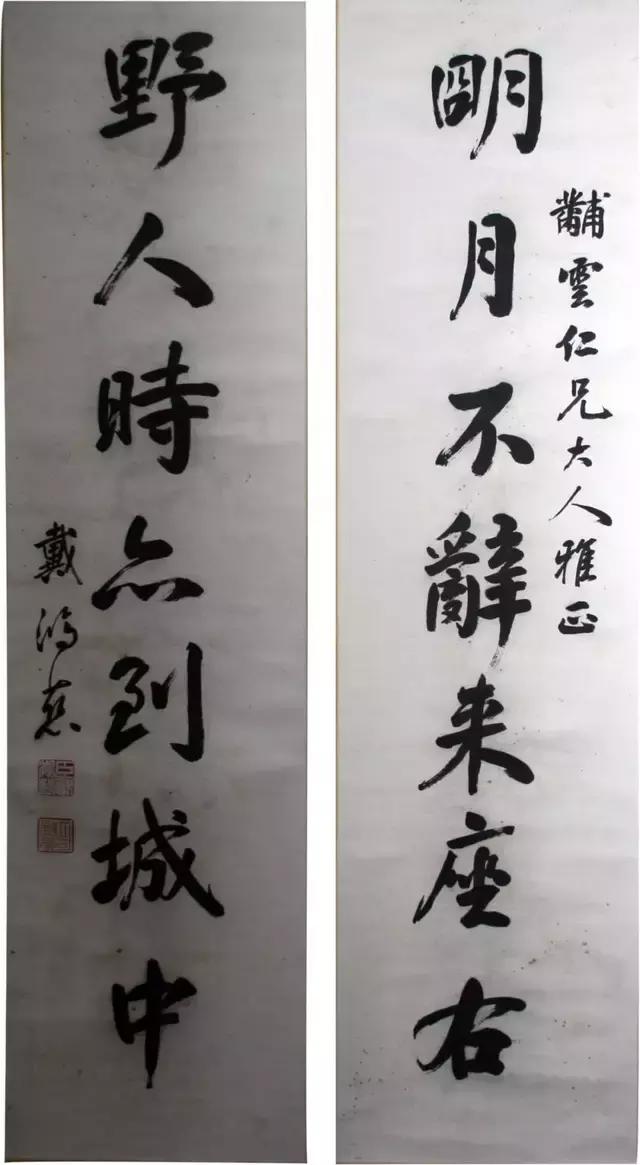 黼雲仁兄大人雅正
朙月不辭来座右
野人時亦到城中
戴鴻慈